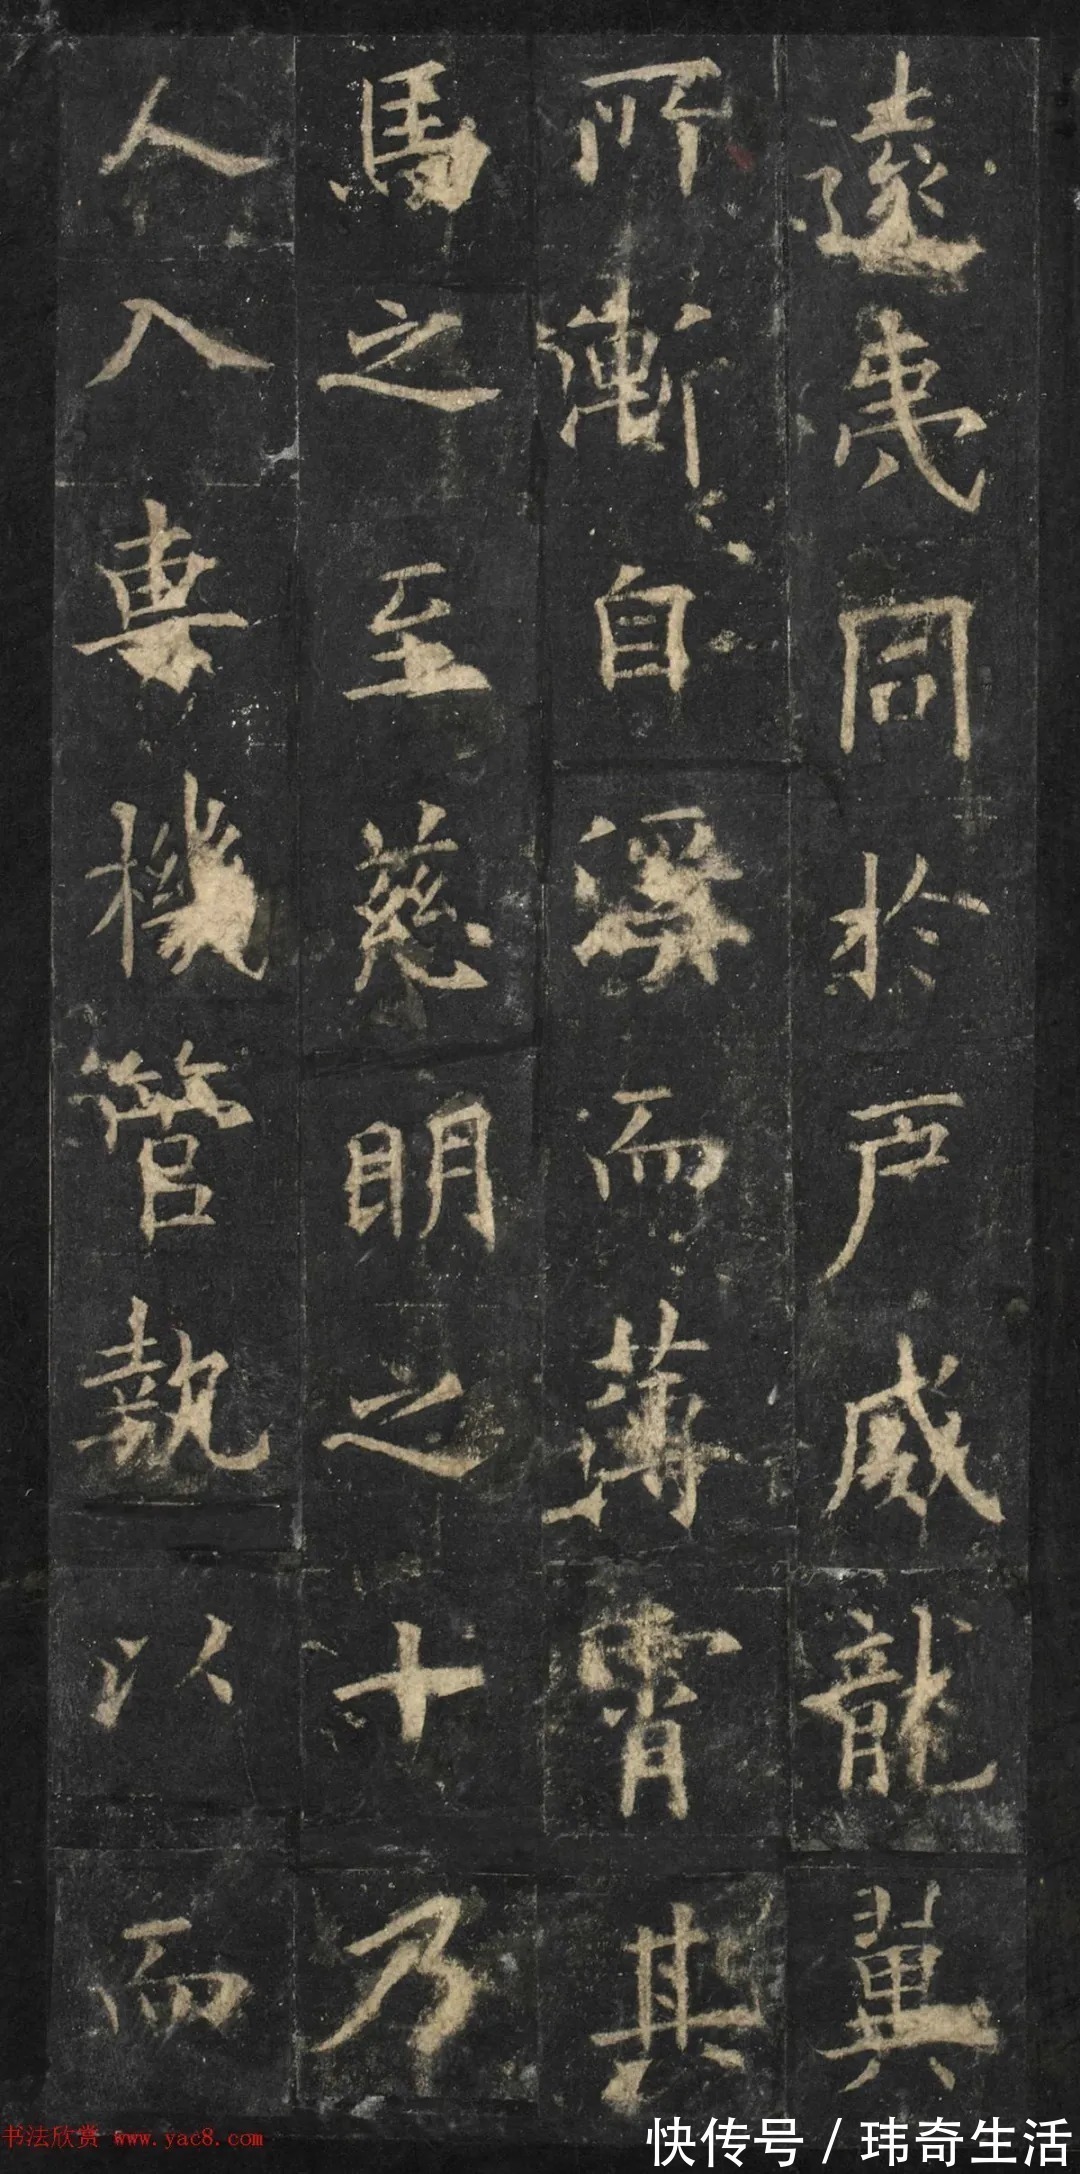 遠夷同於戶威龍冀
所漸自而薄霄其
馬之至慈明之十乃
人入專機管執以而
书法欣赏 www.yac8.com
快传号 / 玮奇生活